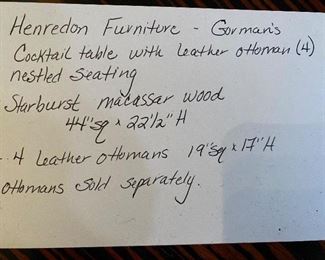 Henredon Furniture - Gorman's
Cocktail table with leather ottoman (4)
nestled seating
Starburst macassar wood
44"sq x 22 1/2" H
4 Leather ottomans 19"sq x 17" H
ottomans sold separately.